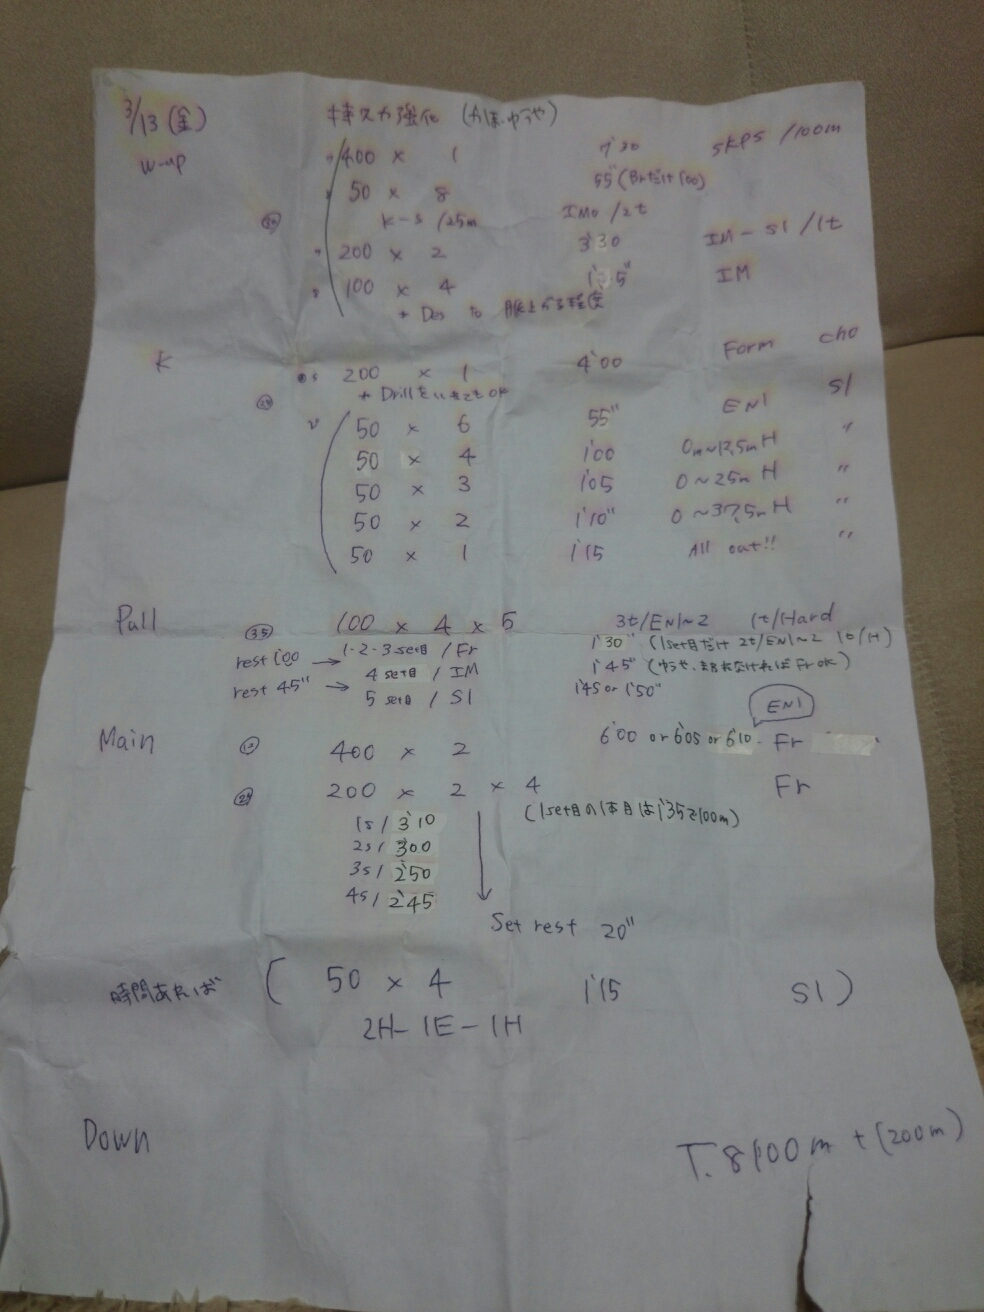 3/13 (金) 持久力強化 (かほ・ゆうや)
W-up 400 × 1 7'20 SKPS /100m
50 × 8 55" (Brだけ1'00)
K-S /25m IMO /2t
200 × 2 3'30 IM-S1 /1t
100 × 4 IM
+ Des to
K 200 × 1 4'00 Form cho
+ Drill OK
50 × 6 55" EN1 S1
50 × 4 1'00 0m~12.5m H "
50 × 3 1'05 0~25m H "
50 × 2 1'10" 0~37.5m H "
50 × 1 1'15 All out!! "
Pull 35 100 × 4 × 5 3t/EN1~2 1t/Hard
rest 1'00 → 1・2・3set目 / Fr 1'30" (1set目だけ 2t/EN1~2 1t/H)
4set目 / IM 1'45" Fr OK)
rest 45" → 5set目 / S1 1'45 or 1'50"
EN1
Main 400 × 2 6'00 or 6'05 or 6'10 Fr
200 × 2 × 4 Fr
(1set目の1本目は1'35で100m)
1s / 3'10
2s / 3'00
3s / 2'50
4s / 2'45
Set rest 20"
時間あれば ( 50 × 4 1'15 S1 )
2H-1E-1H
Down
T. 8100m + (200m)